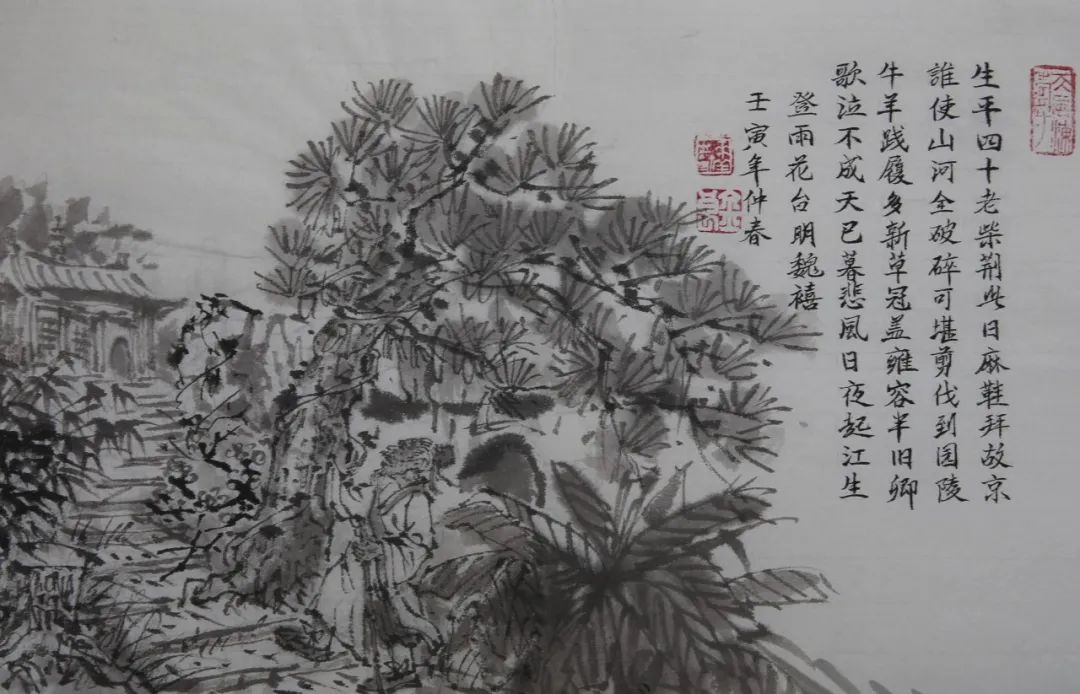 生平四十老柴荆此日麻鞋拜故京
誰使山河全破碎可堪剪伐到园陵
牛羊践履多新草冠盖雍容半旧卿
歌泣不成天已暮悲風日夜起江生
登雨花台明魏禧
壬寅年仲春